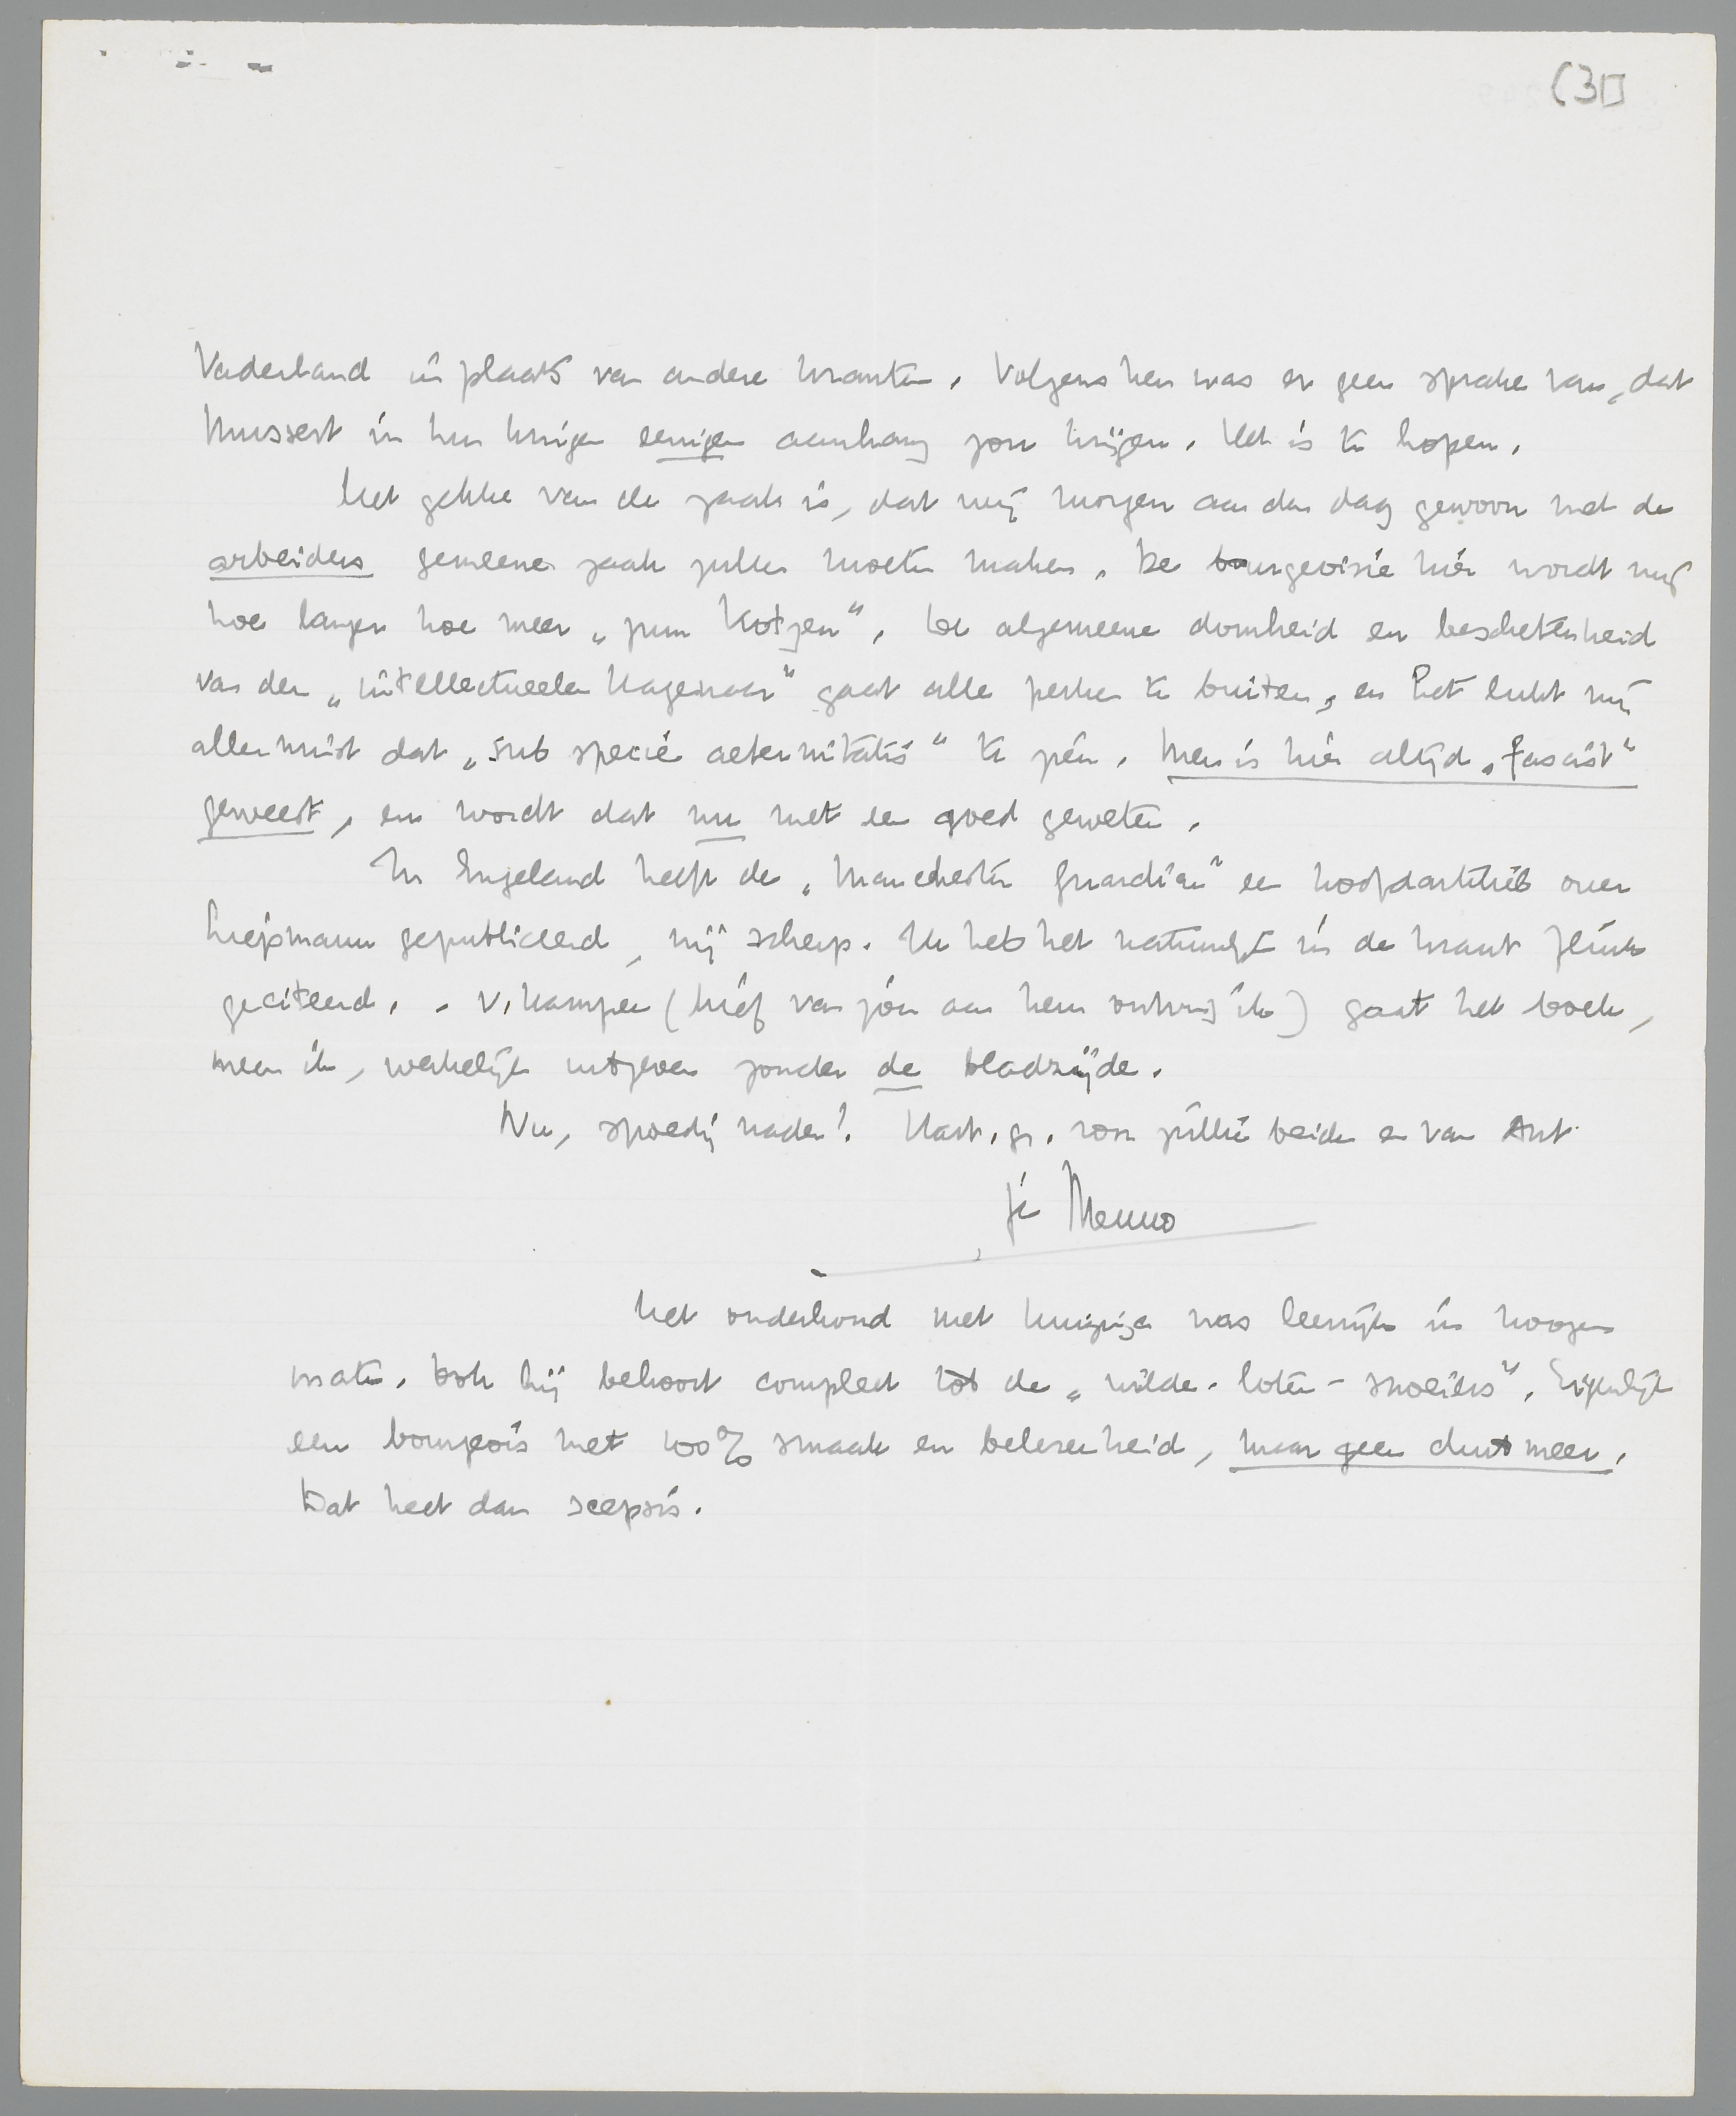 (3)
Vaderland in plaats van andere kranten. Volgens hen was er geen sprake van, dat
Mussert in hun kringen eenigen aanhang zou krijgen. Het is te hopen.
Het gekke van de zaak is, dat wij morgen aan den dag gewoon met de
arbeiders gemeene zaak zullen moeten maken. De bourgeoisie hier wordt mij
hoe langer hoe meer „zum Kotzen“. De algemeene domheid en beschetenheid
van den „intellectueelen Hagenaar“ gaat alle perken te buiten, en het lukt mij
allerminst dat „sub specie aeternitatis“ te zien. Men is hier altijd „fascist“
geweest, en wordt dat nu met een goed geweten.
In Engeland heeft de „Manchester Guardian“ een hoofdartikel over
Liepmann gepubliceerd, vrij scherp. Ik heb het natuurlijk in de krant flink
geciteerd. - V. Kampen (brief van jou aan hem ontving ik) gaat het boek,
meen ik, werkelijk uitgeven zonder de bladzijde.
Nu, spoedig nader! Hart. gr. voor jullie beiden en van Ant
je Menno
Het onderhoud met Huizinga was leerrijk in hooge
mate. Ook hij behoort compleet tot de „wilde-loten-snoeiers“. Eigenlijk
een bourgeois met 100% smaak en belezenheid, maar geen cent meer.
Dat heet dan scepsis.